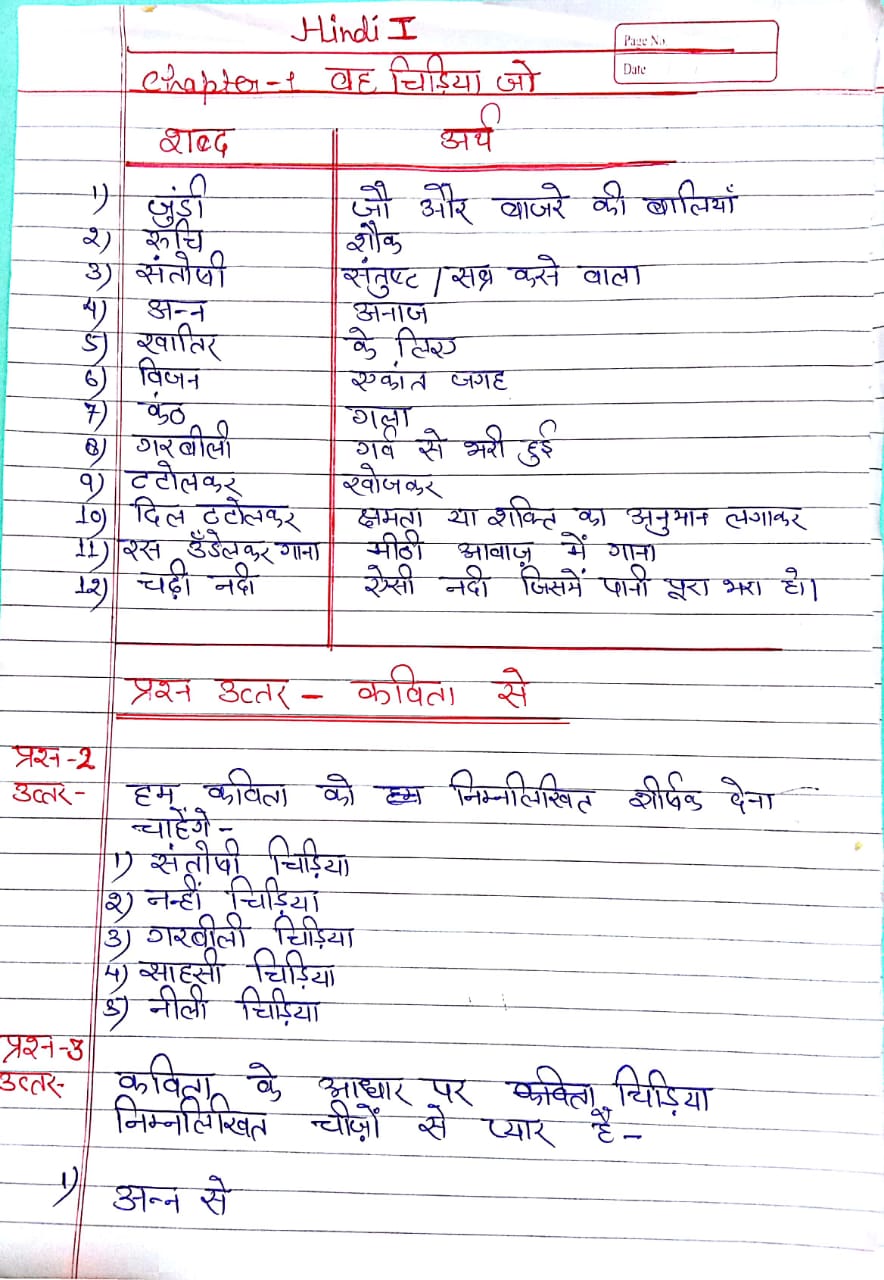 Hindi I
Page No.
Date
Chapter-1 वह चिड़िया जो
शब्द अर्थ
1) जुंडी जौ और बाजरे की बालियाँ
2) रुचि शौक
3) संतोषी संतुष्ट / सब्र करने वाला
4) अन्न अनाज
5) खातिर के लिए
6) विजन एकांत जगह
7) कंठ गला
8) गरबीली गर्व से भरी हुई
9) टटोलकर खोजकर
10) दिल टटोलकर क्षमता या शक्ति का अनुमान लगाकर
11) रस उँडेलकर गाना मीठी आवाज़ में गाना
12) चढ़ी नदी ऐसी नदी जिसमें पानी पूरा भरा हो।
प्रश्न उत्तर - कविता से
प्रश्न-2
उत्तर- हम कविता को निम्नलिखित शीर्षक देना
चाहेंगे -
1) संतोषी चिड़िया
2) नन्हीं चिड़िया
3) गरबीली चिड़िया
4) साहसी चिड़िया
5) नीली चिड़िया
प्रश्न-3
उत्तर- कविता के आधार पर कविता चिड़िया
निम्नलिखित चीज़ों से प्यार है -
1) अन्न से